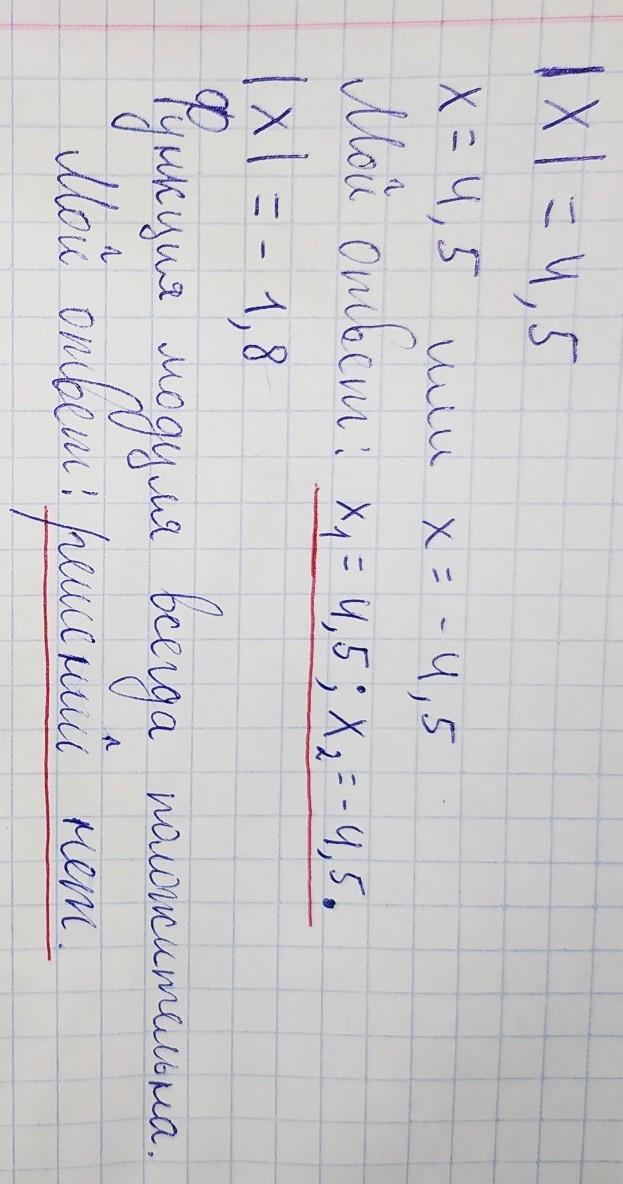 |x| = 4,5
x = 4,5 или x = - 4,5
Мой ответ: x₁ = 4,5; x₂ = -4,5.
|x| = - 1,8
Функция модуля всегда положительна.
Мой ответ: решений нет.